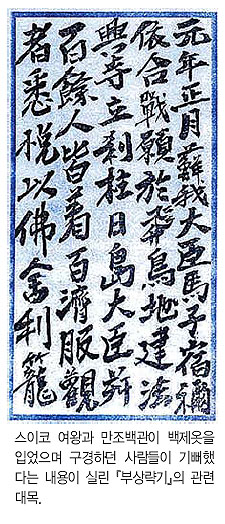 元年正月蘇我大臣馬子宿禰
依合戰願於飛鳥地建法
興寺立刹柱日島大臣幷
百餘人皆着百濟服觀
者悉悅以佛舍利籠
스이코 여왕과 만조백관이 백제옷을
입었으며 구경하던 사람들이 기뻐했
다는 내용이 실린 『부상략기』의 관련
대목.